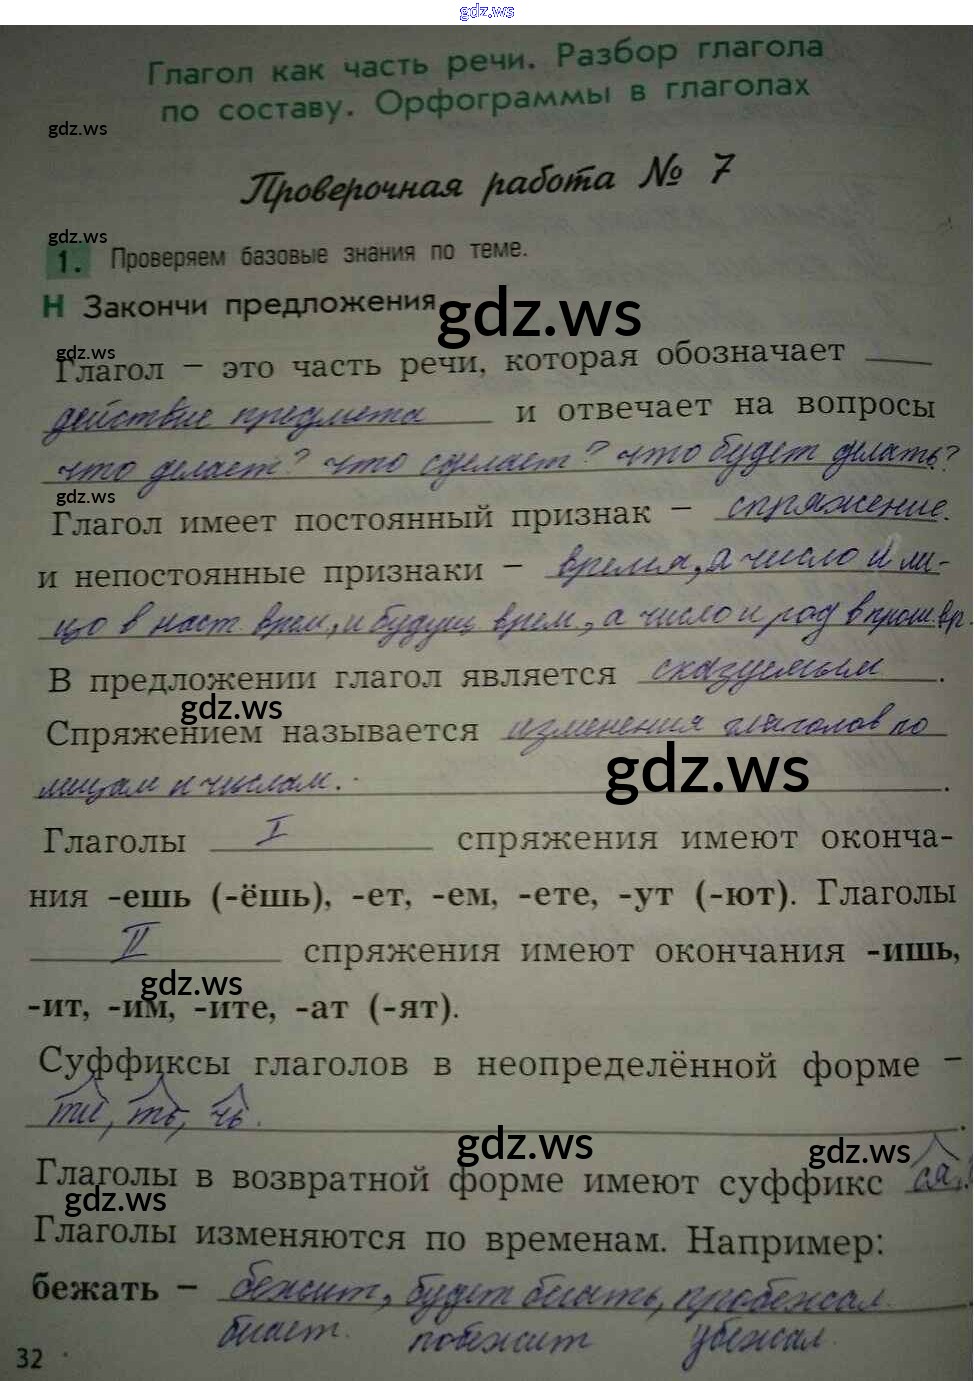 gdz.ws
Глагол как часть речи. Разбор глагола
по составу. Орфограммы в глаголах
gdz.ws
Проверочная работа № 7
gdz.ws
1. Проверяем базовые знания по теме.
Н Закончи предложения
gdz.ws
gdz.ws
Глагол – это часть речи, которая обозначает
действие предмета и отвечает на вопросы
что делает? что сделает? что будет делать?
gdz.ws
Глагол имеет постоянный признак – спряжение.
и непостоянные признаки – время, а число и ли-
цо в наст врем, и будущ врем, а число и род в прош.вр.
В предложении глагол является сказуемым.
gdz.ws
Спряжением называется изменения глаголов по
gdz.ws
лицам и числам.
Глаголы I спряжения имеют оконча-
ния -ешь (-ёшь), -ет, -ем, -ете, -ут (-ют). Глаголы
II спряжения имеют окончания -ишь,
gdz.ws
-ит, -им, -ите, -ат (-ят).
Суффиксы глаголов в неопределённой форме –
ти, ть, чь.
gdz.ws
gdz.ws
Глаголы в возвратной форме имеют суффикс ся,
gdz.ws
Глаголы изменяются по временам. Например:
бежать – бежит, будет бегать, пробежал.
бегает. побежит убежал.
32